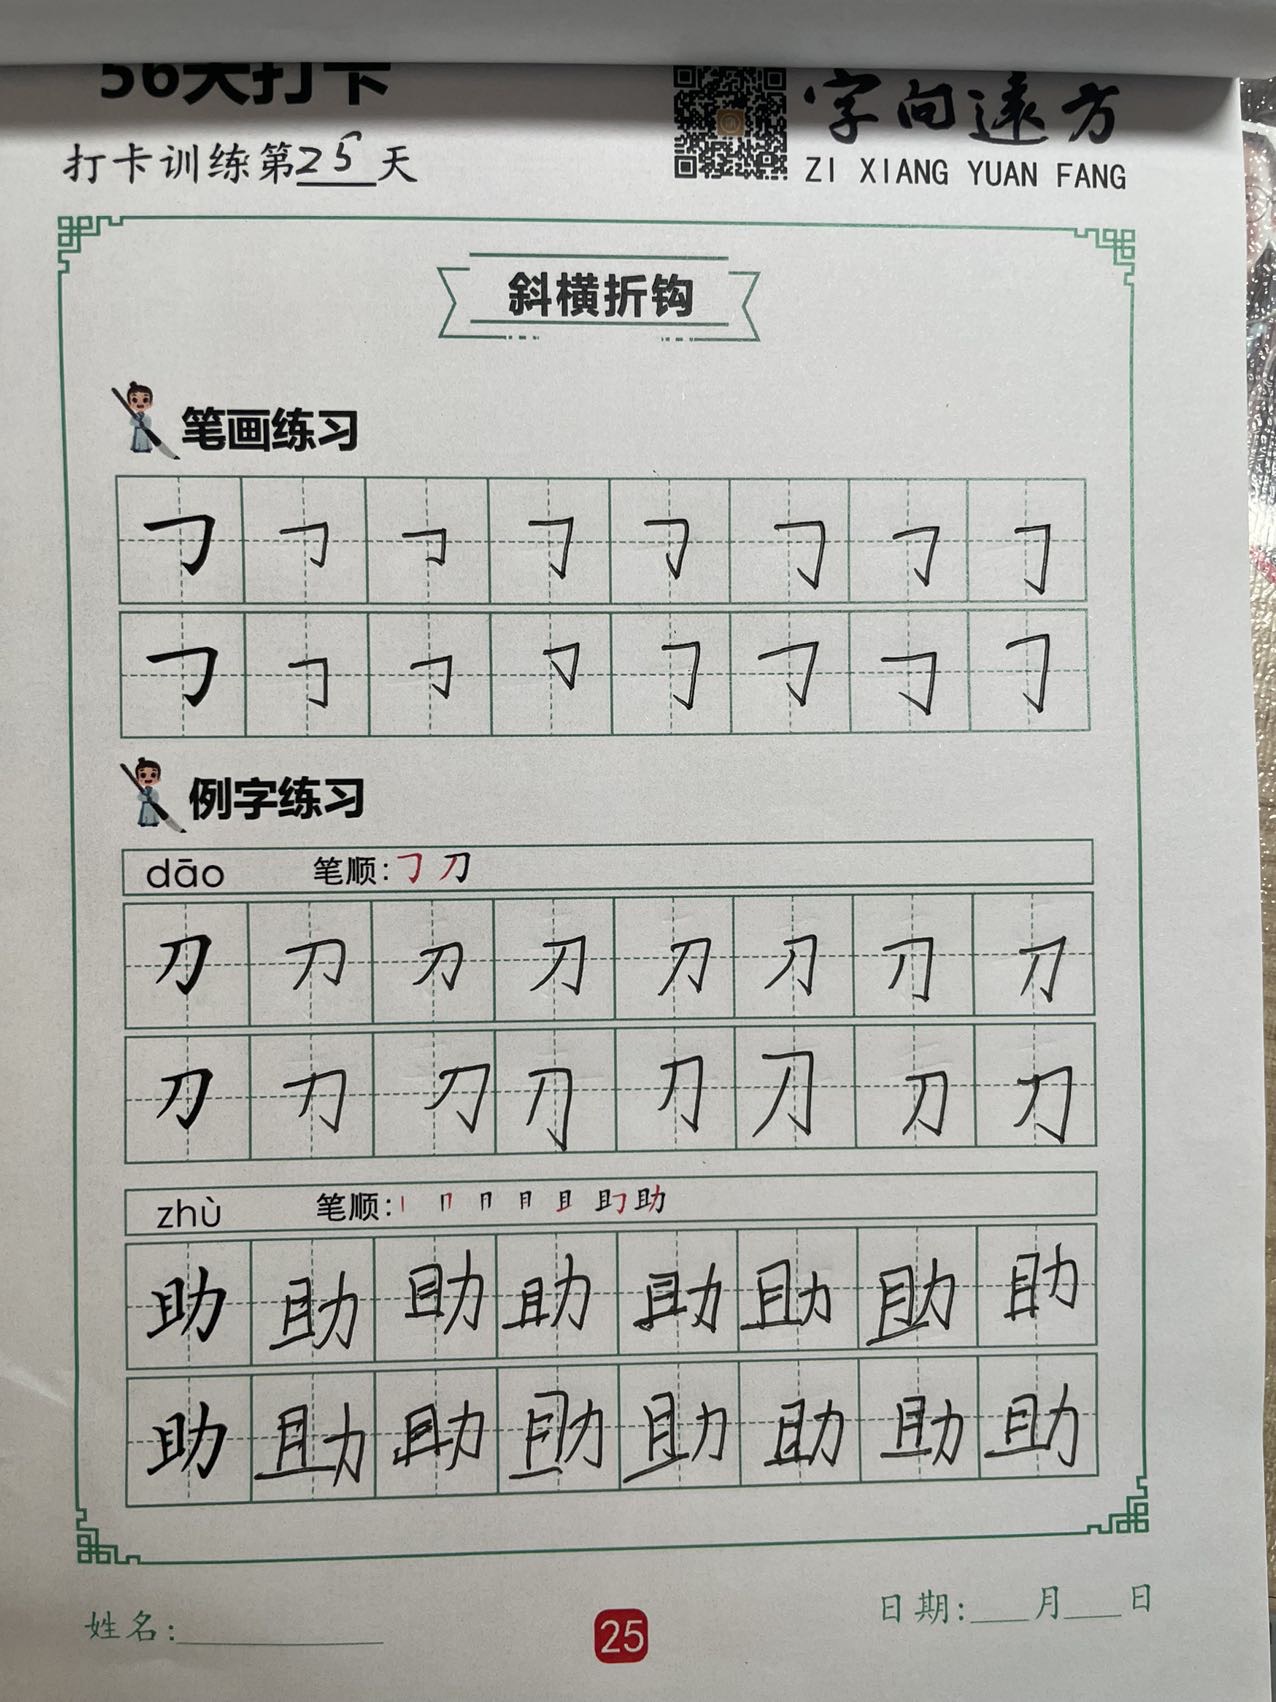 56天打卡
字向远方
打卡训练第25天
ZI XIANG YUAN FANG
斜横折钩
笔画练习
㇆ ㇆ ㇆ ㇆ ㇆ ㇆ ㇆ ㇆
㇆ ㇆ ㇆ ㇆ ㇆ ㇆ ㇆ ㇆
例字练习
dāo 笔顺: ㇆ 刀
刀 刀 刀 刀 刀 刀 刀 刀
刀 刀 刀 刀 刀 刀 刀 刀
zhù 笔顺: 丨 冂 月 且 助
助 助 助 助 助 助 助 助
助 助 助 助 助 助 助 助
姓名:
日期: 月 日
25